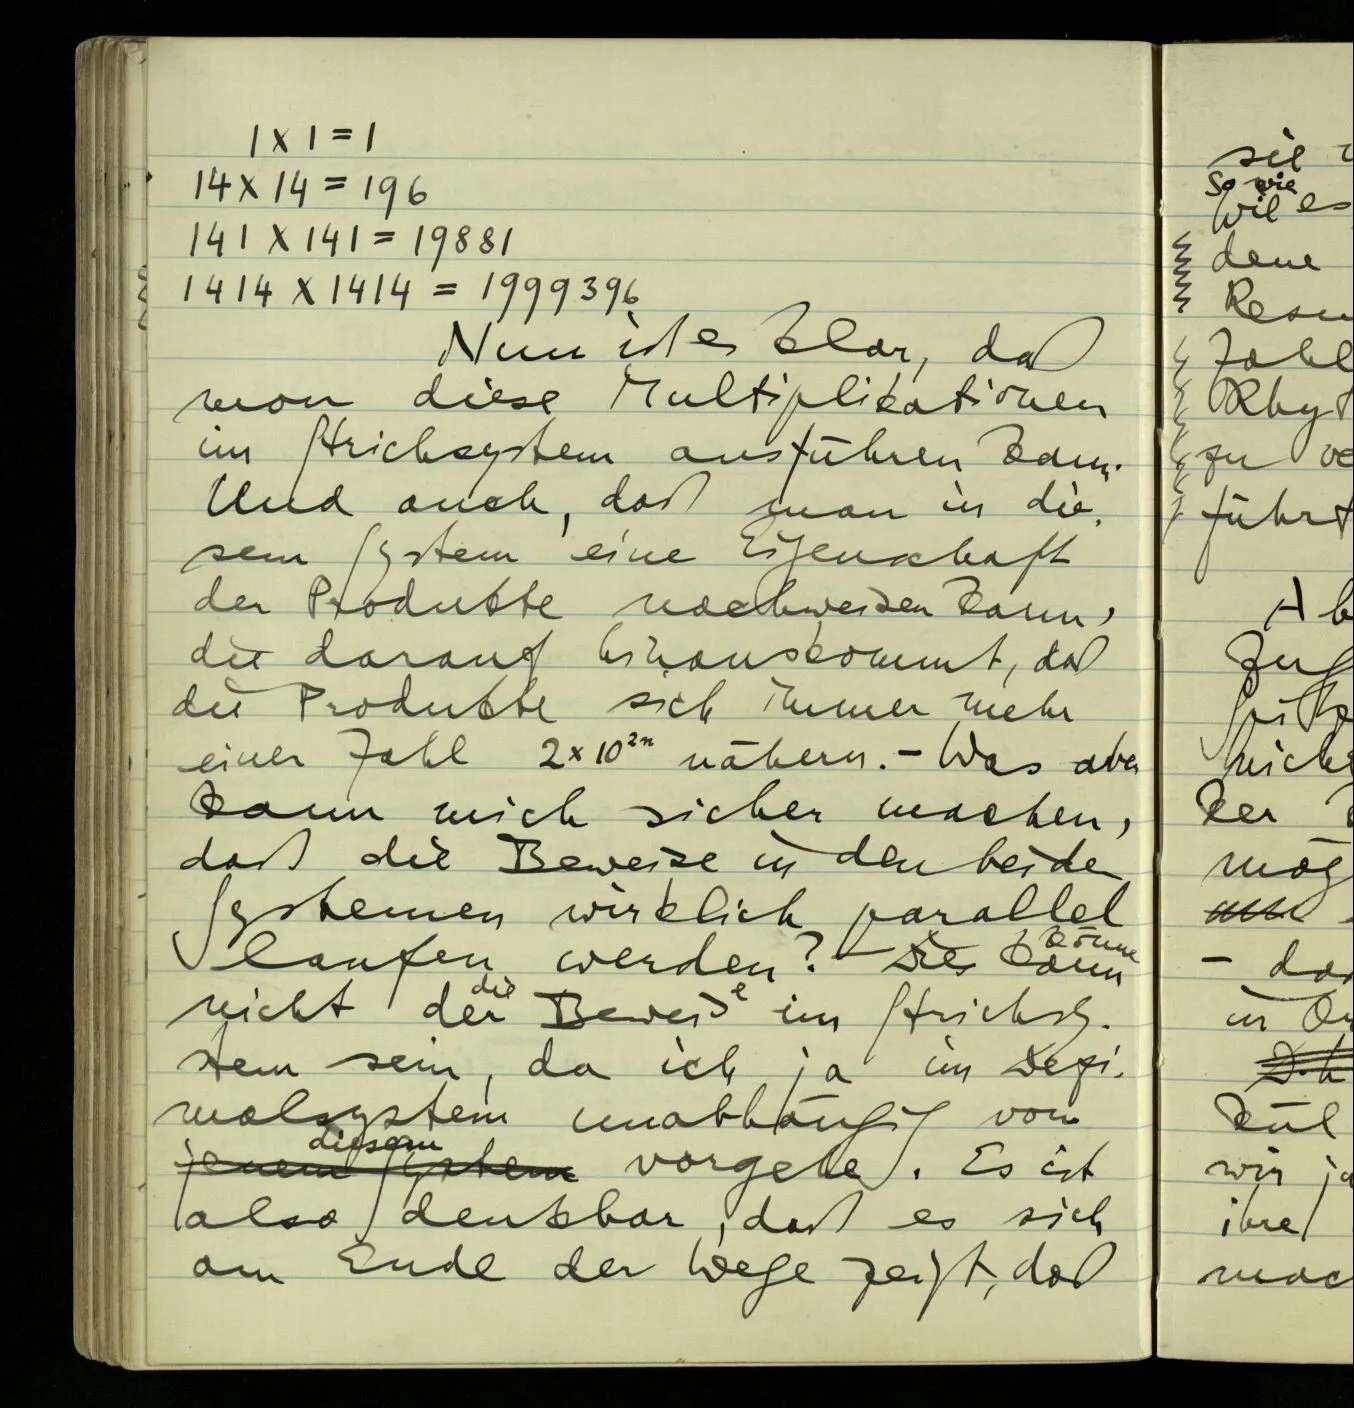 1 x 1 = 1
14 x 14 = 196
141 x 141 = 19881
1414 x 1414 = 1999396
Nun ist es klar, daß
man diese Multiplikationen
im Strichsystem ausführen kann.
Und auch, daß man in die-
sem System eine Eigenschaft
der Produkte nachweisen kann,
die darauf hinauskommt, daß
die Produkte sich immer mehr
einer Zahl 2 x 10²ⁿ nähern. – Was aber
kann mich sicher machen,
daß die Beweise in den beiden
Systemen wirklich parallel
laufen werden? – Dies kann könne
nicht der die Beweise im Strichsy-
stem sein, da ich ja im Dezi-
malsystem unabhängig von
jenem System diesem vorgehe. Es ist
also denkbar, daß es sich
am Ende der Wege zeigt, daß
sie
so wie
wie es
dene
Resu
Zahl
Rhyt
zu ve
führt
Ab
Zuf
nicht
ker
mög
– das
in Or
kül
wir ja
ihre
mac